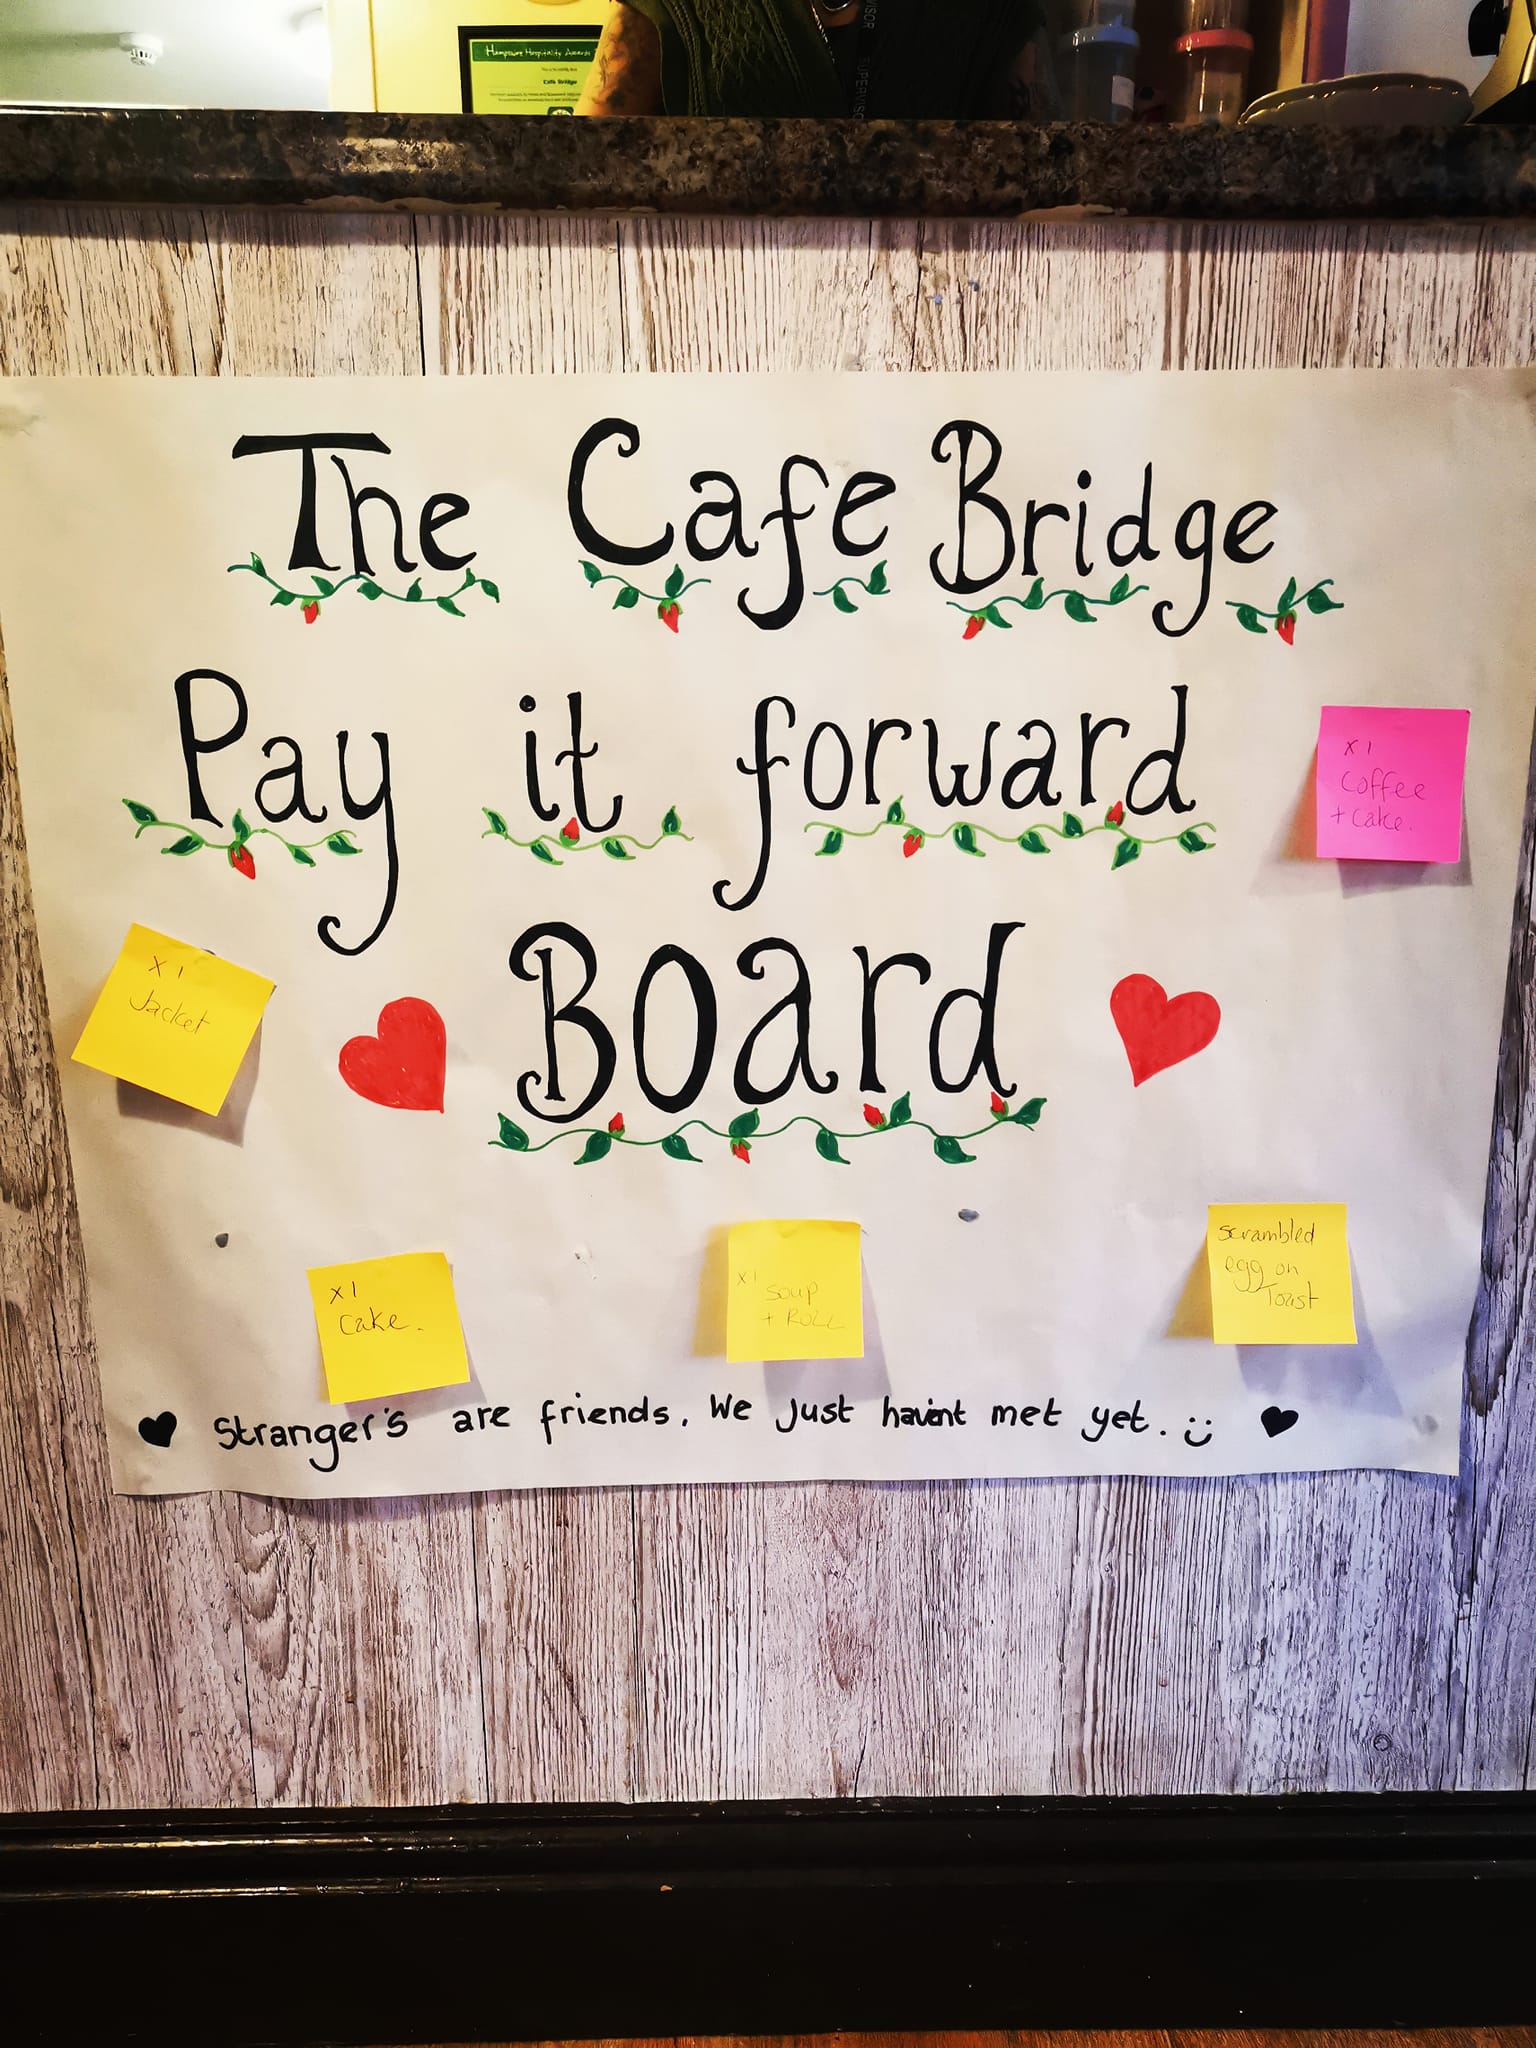 Hampshire Hospitality Awards
Cafe Bridge
SUPERVISOR
VISOR
The Cafe Bridge
Pay it forward
Board
x 1
Coffee
+ Cake.
x 1
Jacket
x 1
Cake.
x 1 soup
+ ROLL
Scrambled
egg on
Toast
Stranger's are friends. We just havent met yet.